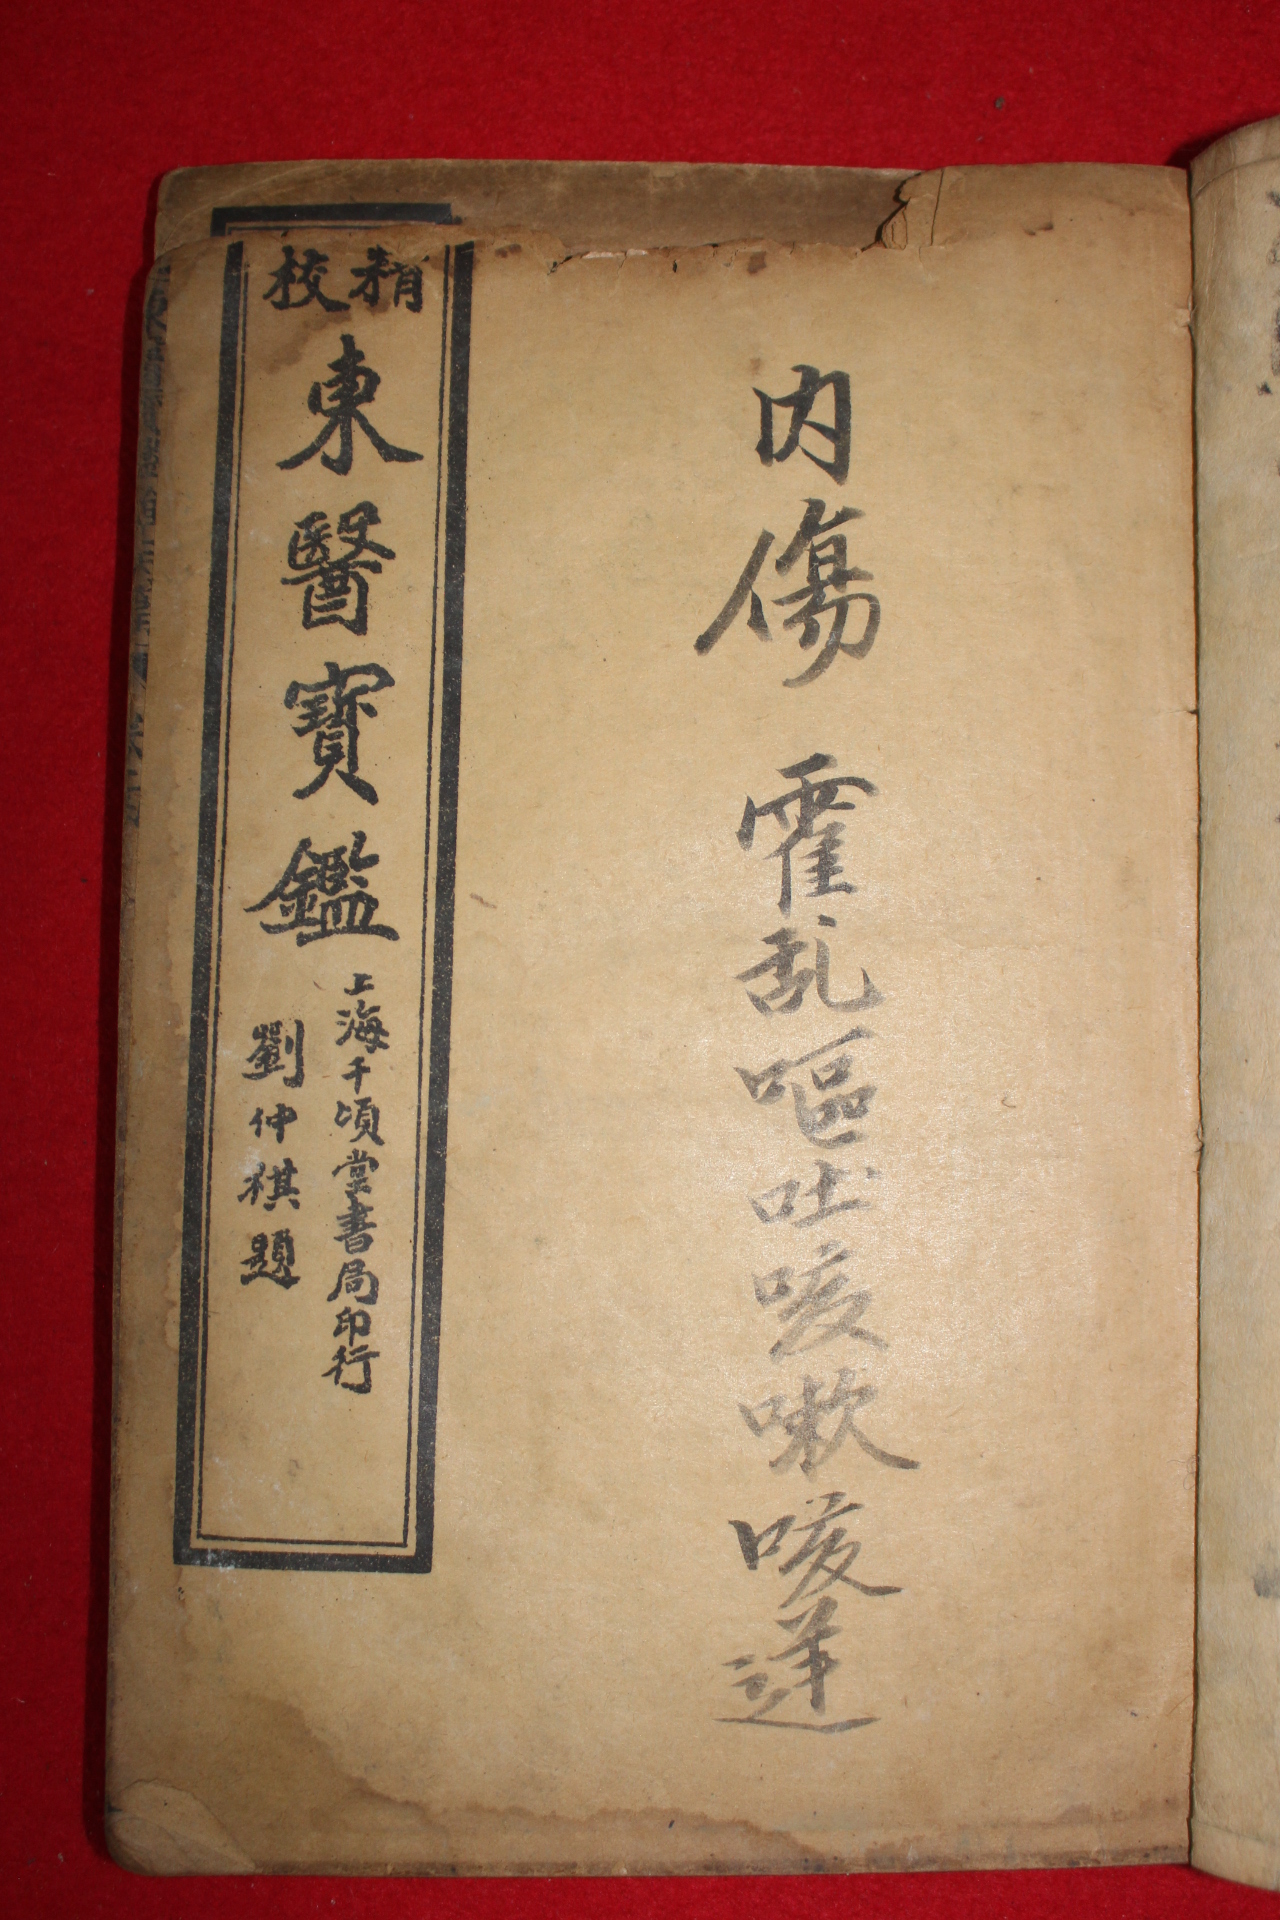 內傷 霍乱嘔吐咳嗽咳逆
精校
東醫寶鑑
上海千頃堂書局印行
劉仲祺題